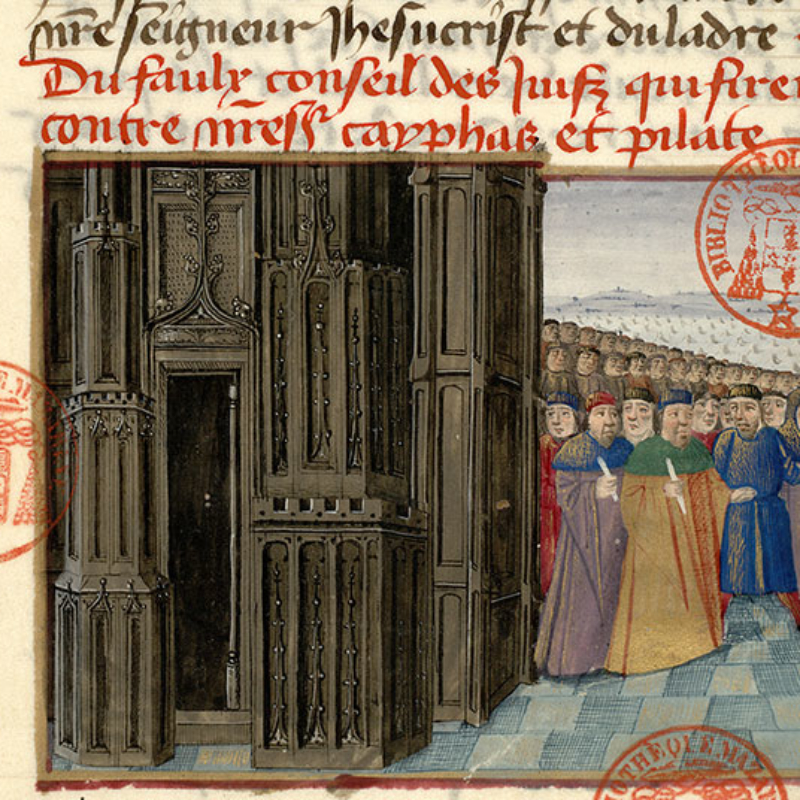 nr̃e seigneur Jhesucrist et du ladre
Du faulx conseil des Juifz qui firen
contre nr̃e sr̃ cayphas et pilate
BIBLIOTHÈQU
OTHEQUE MAZ